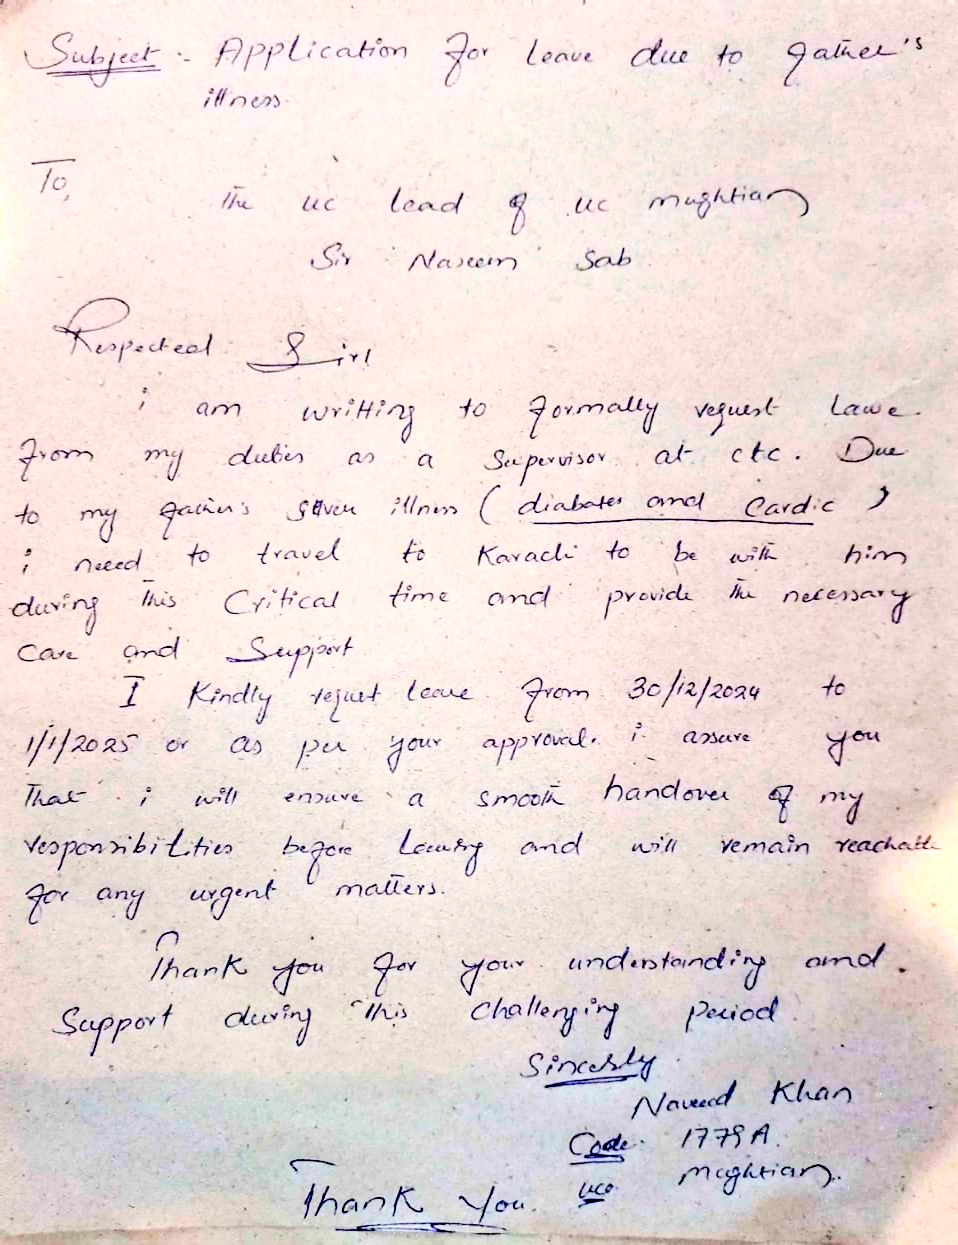 Subject :- Application for leave due to father's
illness.
To,
The uc lead of uc mughtian
Sir Naseem Sab
Respected Sir!
i am writting to formally request Lawe
from my duties as a Supervisor at ctc. Due
to my father's seven illness (diabates and Cardic)
i neeed to travel to Karachi to be with him
during this Critical time and provide the necessary
Care and Support
I Kindly request leave from 30/12/2024 to
1/1/2025 or as per your approval. i assure you
That i will ensure a smooth handover of my
responsibilities before leaving and will remain reachable
for any urgent matters.
Thank you for your understanding and
Support during this challenging period
Sincerly
Naveed Khan
Code. 1779A.
uco mughtian.
Thank You.